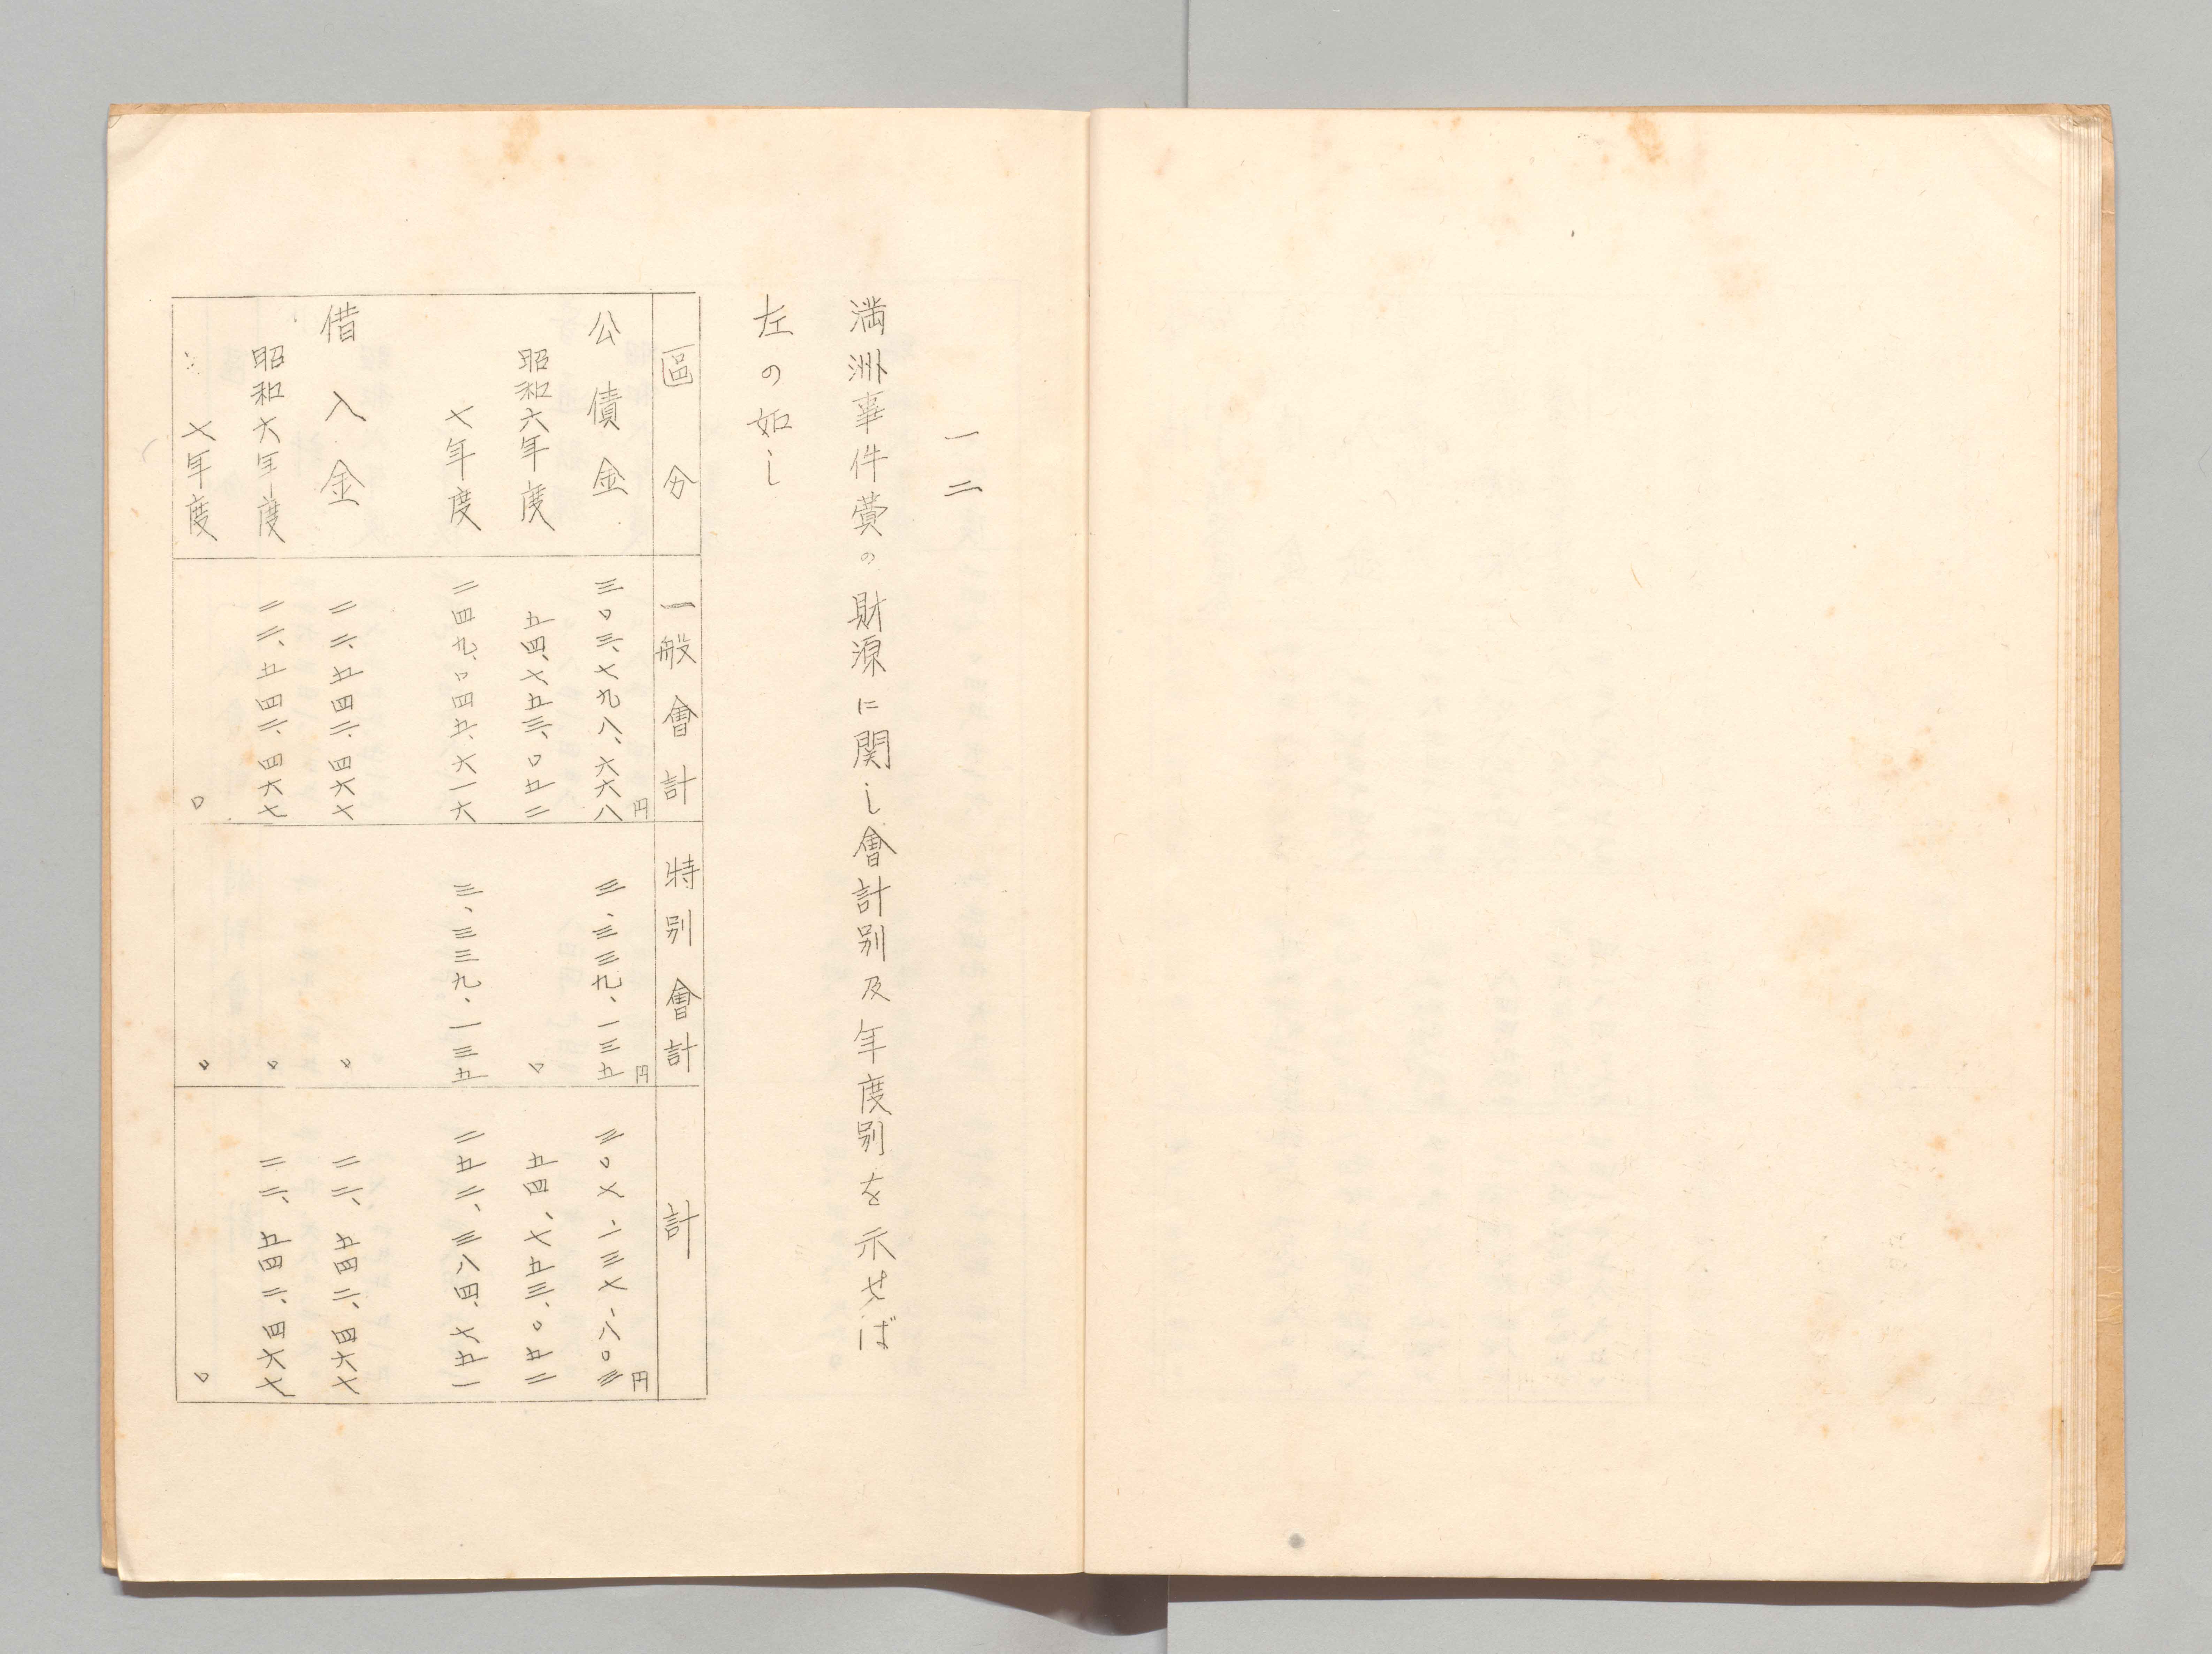 一二
満洲事件費の財源に関し會計別及年度別を示せば
左の如し
區分 一般會計 特別會計 計
公債金 三〇三、七九八、六六八円 三、三三九、一三五円 三〇七、一三七、八〇三円
昭和六年度 五四、七五三、〇五二 〇 五四、七五三、〇五二
七年度 二四九、〇四五、六一六 三、三三九、一三五 二五二、三八四、七五一
借入金 二二、五四二、四六七 〇 二二、五四二、四六七
昭和六年度 二二、五四二、四六七 〇 二二、五四二、四六七
七年度 〇 〇 〇